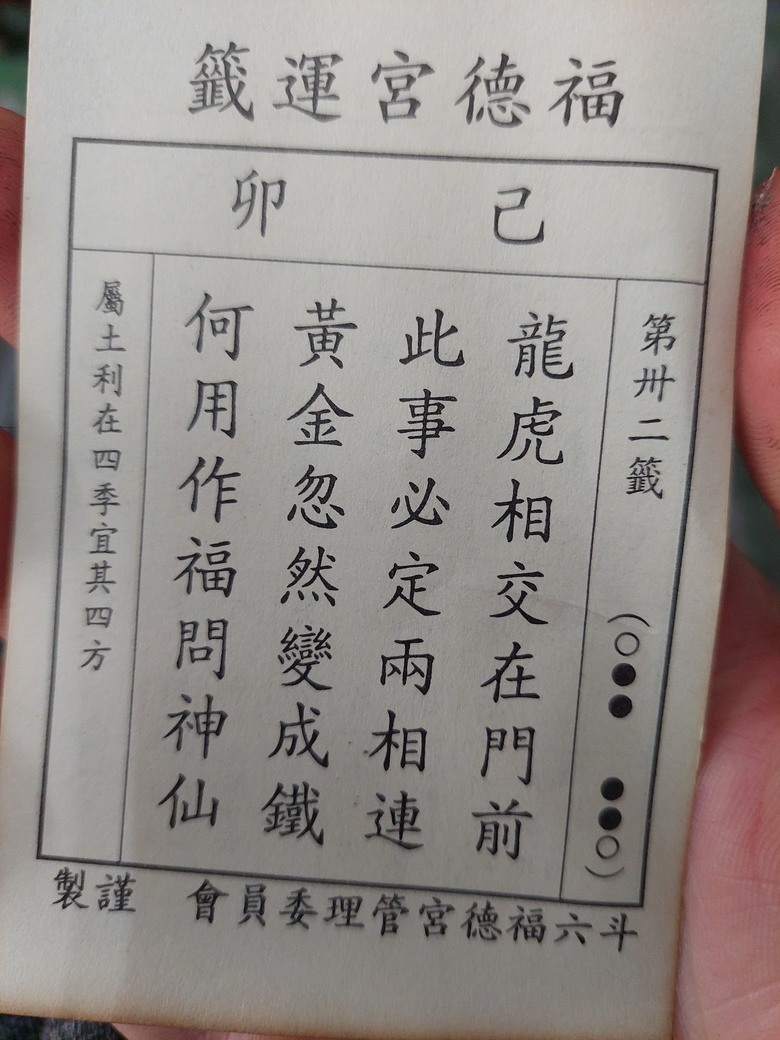 福德宮運籤
己卯
第卅二籤 (○●● ●●○)
龍虎相交在門前
此事必定兩相連
黃金忽然變成鐵
何用作福問神仙
屬土利在四季宜其四方
斗六福德宮管理委員會 謹製